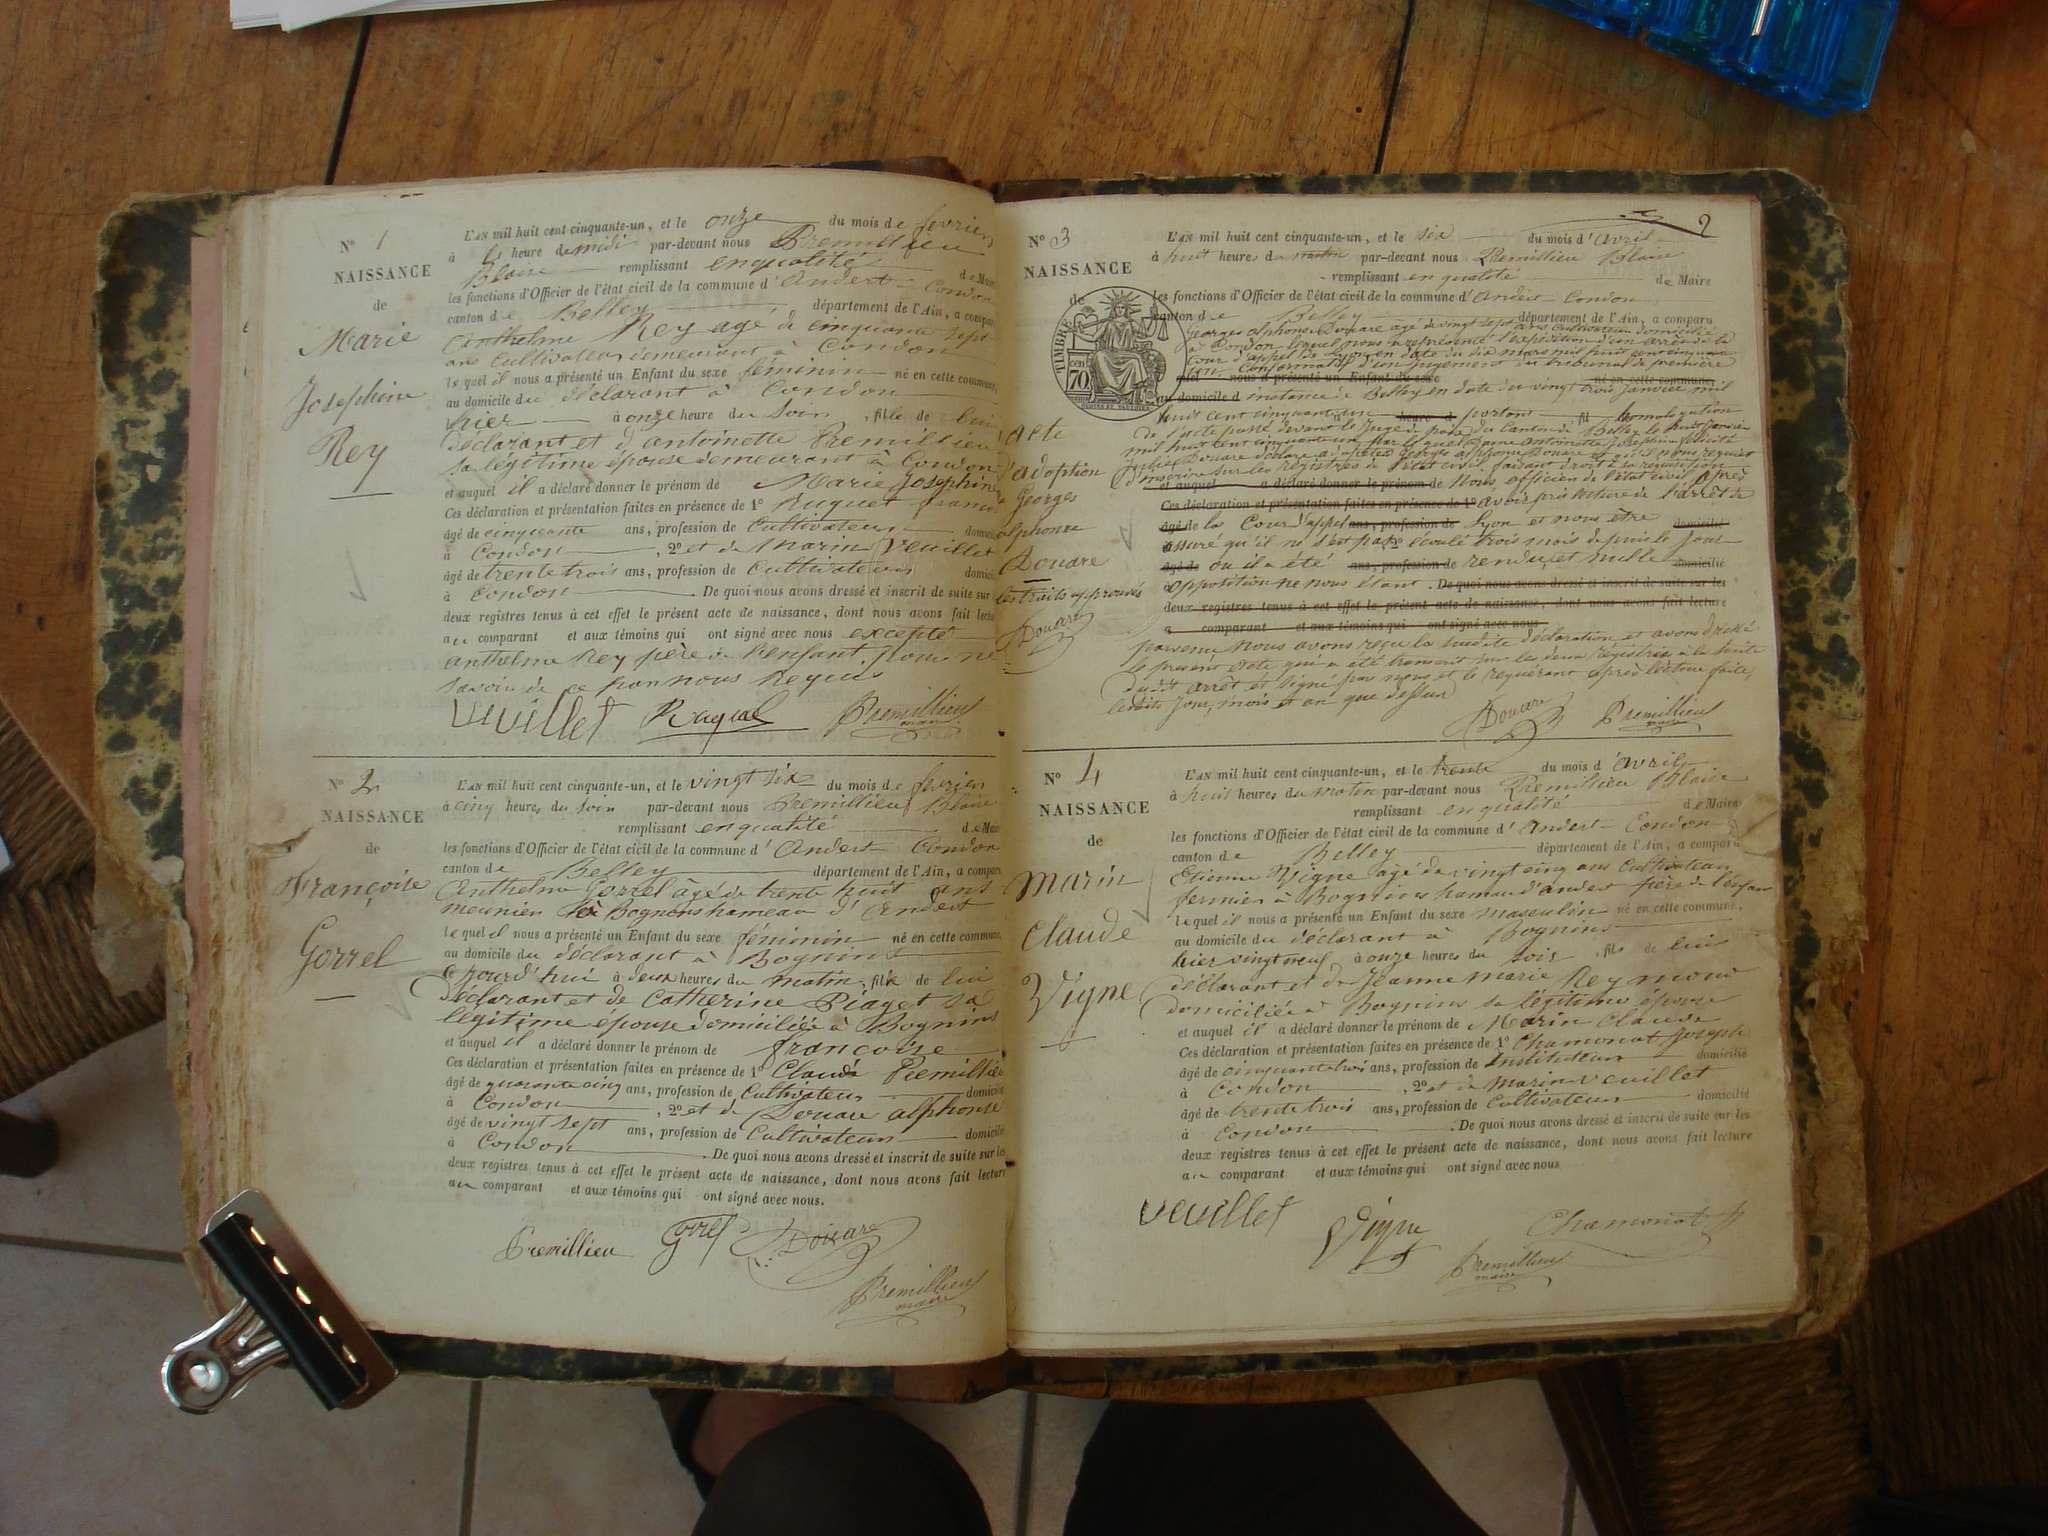 N° 1
NAISSANCE
de
Marie
Josephine
Rey
L'AN mil huit cent cinquante-un, et le onze du mois de fevrier
à heure de midi par-devant nous Premillieu
Blaise remplissant en qualité de Maire
les fonctions d'Officier de l'état civil de la commune d'Andert-Condon
canton de Belley département de l'Ain, a comparu
Anthelme Rey agé de cinquante sept
ans Cultivateur demeurant à Condon
lequel il nous a présenté un Enfant du sexe féminin né en cette commune,
au domicile du déclarant à Condon
hier à onze heure du soir, fille de lui
déclarant et d'antoinette Premillieu
sa légitime épouse demeurant à Condon
et auquel il a déclaré donner le prénom de Marie Josephine
Ces déclaration et présentation faites en présence de 1°
âgé de cinquante ans, profession de Cultivateur domicilié
à Condon, 2° et de Marin Veuillet
âgé de trente trois ans, profession de Cultivateur domicilié
à Condon. De quoi nous avons dressé et inscrit de suite sur les
deux registres tenus à cet effet le présent acte de naissance, dont nous avons fait lecture
au comparant et aux témoins qui ont signé avec nous excepté
anthelme Rey père de l'enfant, pour ne
savoir de ce par nous Requis
Veuillet Premillieu
maire
N° 2
NAISSANCE
de
Françoise
Gorrel
L'AN mil huit cent cinquante-un, et le vingt six du mois de fevrier
à cinq heures du soir par-devant nous Premillieu Blaise
remplissant en qualité de Maire
les fonctions d'Officier de l'état civil de la commune d'Andert Condon
canton de Belley département de l'Ain, a comparu
Anthelme Gorrel âgé de trente huit ans
meunier à Bognens hameau d'Andert
lequel il nous a présenté un Enfant du sexe féminin né en cette commune,
au domicile du déclarant à Bognins
ce jourd'hui à deux heures du matin, fille de lui
déclarant et de Catherine Piaget sa
légitime épouse domiciliée à Bognins
et auquel il a déclaré donner le prénom de françoise
Ces déclaration et présentation faites en présence de 1° Claude Premillieu
âgé de quarante cinq ans, profession de Cultivateur domicilié
à Condon, 2° et de Douare alphonse
âgé de vingt sept ans, profession de Cultivateur domicilié
à Condon. De quoi nous avons dressé et inscrit de suite sur les
deux registres tenus à cet effet le présent acte de naissance, dont nous avons fait lecture
au comparant et aux témoins qui ont signé avec nous.
Premillieu Gorrel Douare
Premillieu
maire
2
N° 3
NAISSANCE
de
TIMBRE
70 cen
acte
d'adoption
Georges
alphonse
Douare
les traits approuvés
Douare
L'AN mil huit cent cinquante-un, et le six du mois d'avril
à huit heures du matin par-devant nous Premillieu Blaise
remplissant en qualité de Maire
les fonctions d'Officier de l'état civil de la commune d'Andert-Condon
canton de Belley département de l'Ain, a comparu
Georges alphonse Douare agé de vingt sept ans Cultivateur domicilié
à Condon lequel nous a représenté l'expédition d'un arrêt de la
Cour d'appel de Lyon en date du dix mars mil huit cent cinquante
un Conformatif d'un jugement du tribunal de première
quel nous a présenté un Enfant du sexe né en cette commune,
au domicile d instance de Belley en date du vingt trois janvier mil
huit cent cinquante un heure d portant fil homologation
de l'acte passé devant le Juge de paix du Canton de Belley le huit Janvier
mil huit cent cinquante un par lequel Dame antoinette Josephine félicité
Julie Douare déclare adopter Georges alphonse Douare et qu'il nous requiert
d'inscrire sur les registres de l'état civil, faisant droit à sa requisition
et auquel a déclaré donner le prénom de Nous officier de l'état civil, après
Ces déclaration et présentation faites en présence de 1° avoir pris lecture de l'arrêt de
âgé de la Cour d'appel ans, profession de Lyon et nous être domicilié
assuré qu'il ne s'est pas 2° écoulé trois mois depuis le jour
âgé de où il a été ans, profession de rendu, et nulle domicilié
à opposition ne nous étant. De quoi nous avons dressé et inscrit de suite sur les
deux registres tenus à cet effet le présent acte de naissance, dont nous avons fait lecture
a comparant et aux témoins qui ont signé avec nous
parvenue Nous avons reçu la susdite déclaration et avons dressé
le présent acte qui a été transcrit sur les deux régistres à la suite
dudit arrêt et signé par nous et le requérant après lecture faite,
lesdits jour, mois et an que dessus
Douare Premillieu
maire
N° 4
NAISSANCE
de
Marin
Claude
Vigne
L'AN mil huit cent cinquante-un, et le trente du mois d'avril
à huit heures du matin par-devant nous Premillieu Blaise
remplissant en qualité de Maire
les fonctions d'Officier de l'état civil de la commune d'Andert-Condon
canton de Belley département de l'Ain, a comparu
Etienne Vigne agé de vingt cinq ans Cultivateur
fermier à Bognins hameau d'andert père de l'enfant
lequel il nous a présenté un Enfant du sexe masculin né en cette commune,
au domicile du déclarant à Bognins
hier vingt neuf à onze heures du soir, fils de lui
déclarant et de Jeanne Marie Reymond
domiciliée à Bognins sa légitime épouse
et auquel il a déclaré donner le prénom de Marin Claude
Ces déclaration et présentation faites en présence de 1° Chamonat Joseph
âgé de cinquante trois ans, profession de Instituteur domicilié
à Condon, 2° et de Marin Veuillet
âgé de trente trois ans, profession de Cultivateur domicilié
à Condon. De quoi nous avons dressé et inscrit de suite sur les
deux registres tenus à cet effet le présent acte de naissance, dont nous avons fait lecture
au comparant et aux témoins qui ont signé avec nous
Veuillet Vigne Chamonat
Premillieu
maire